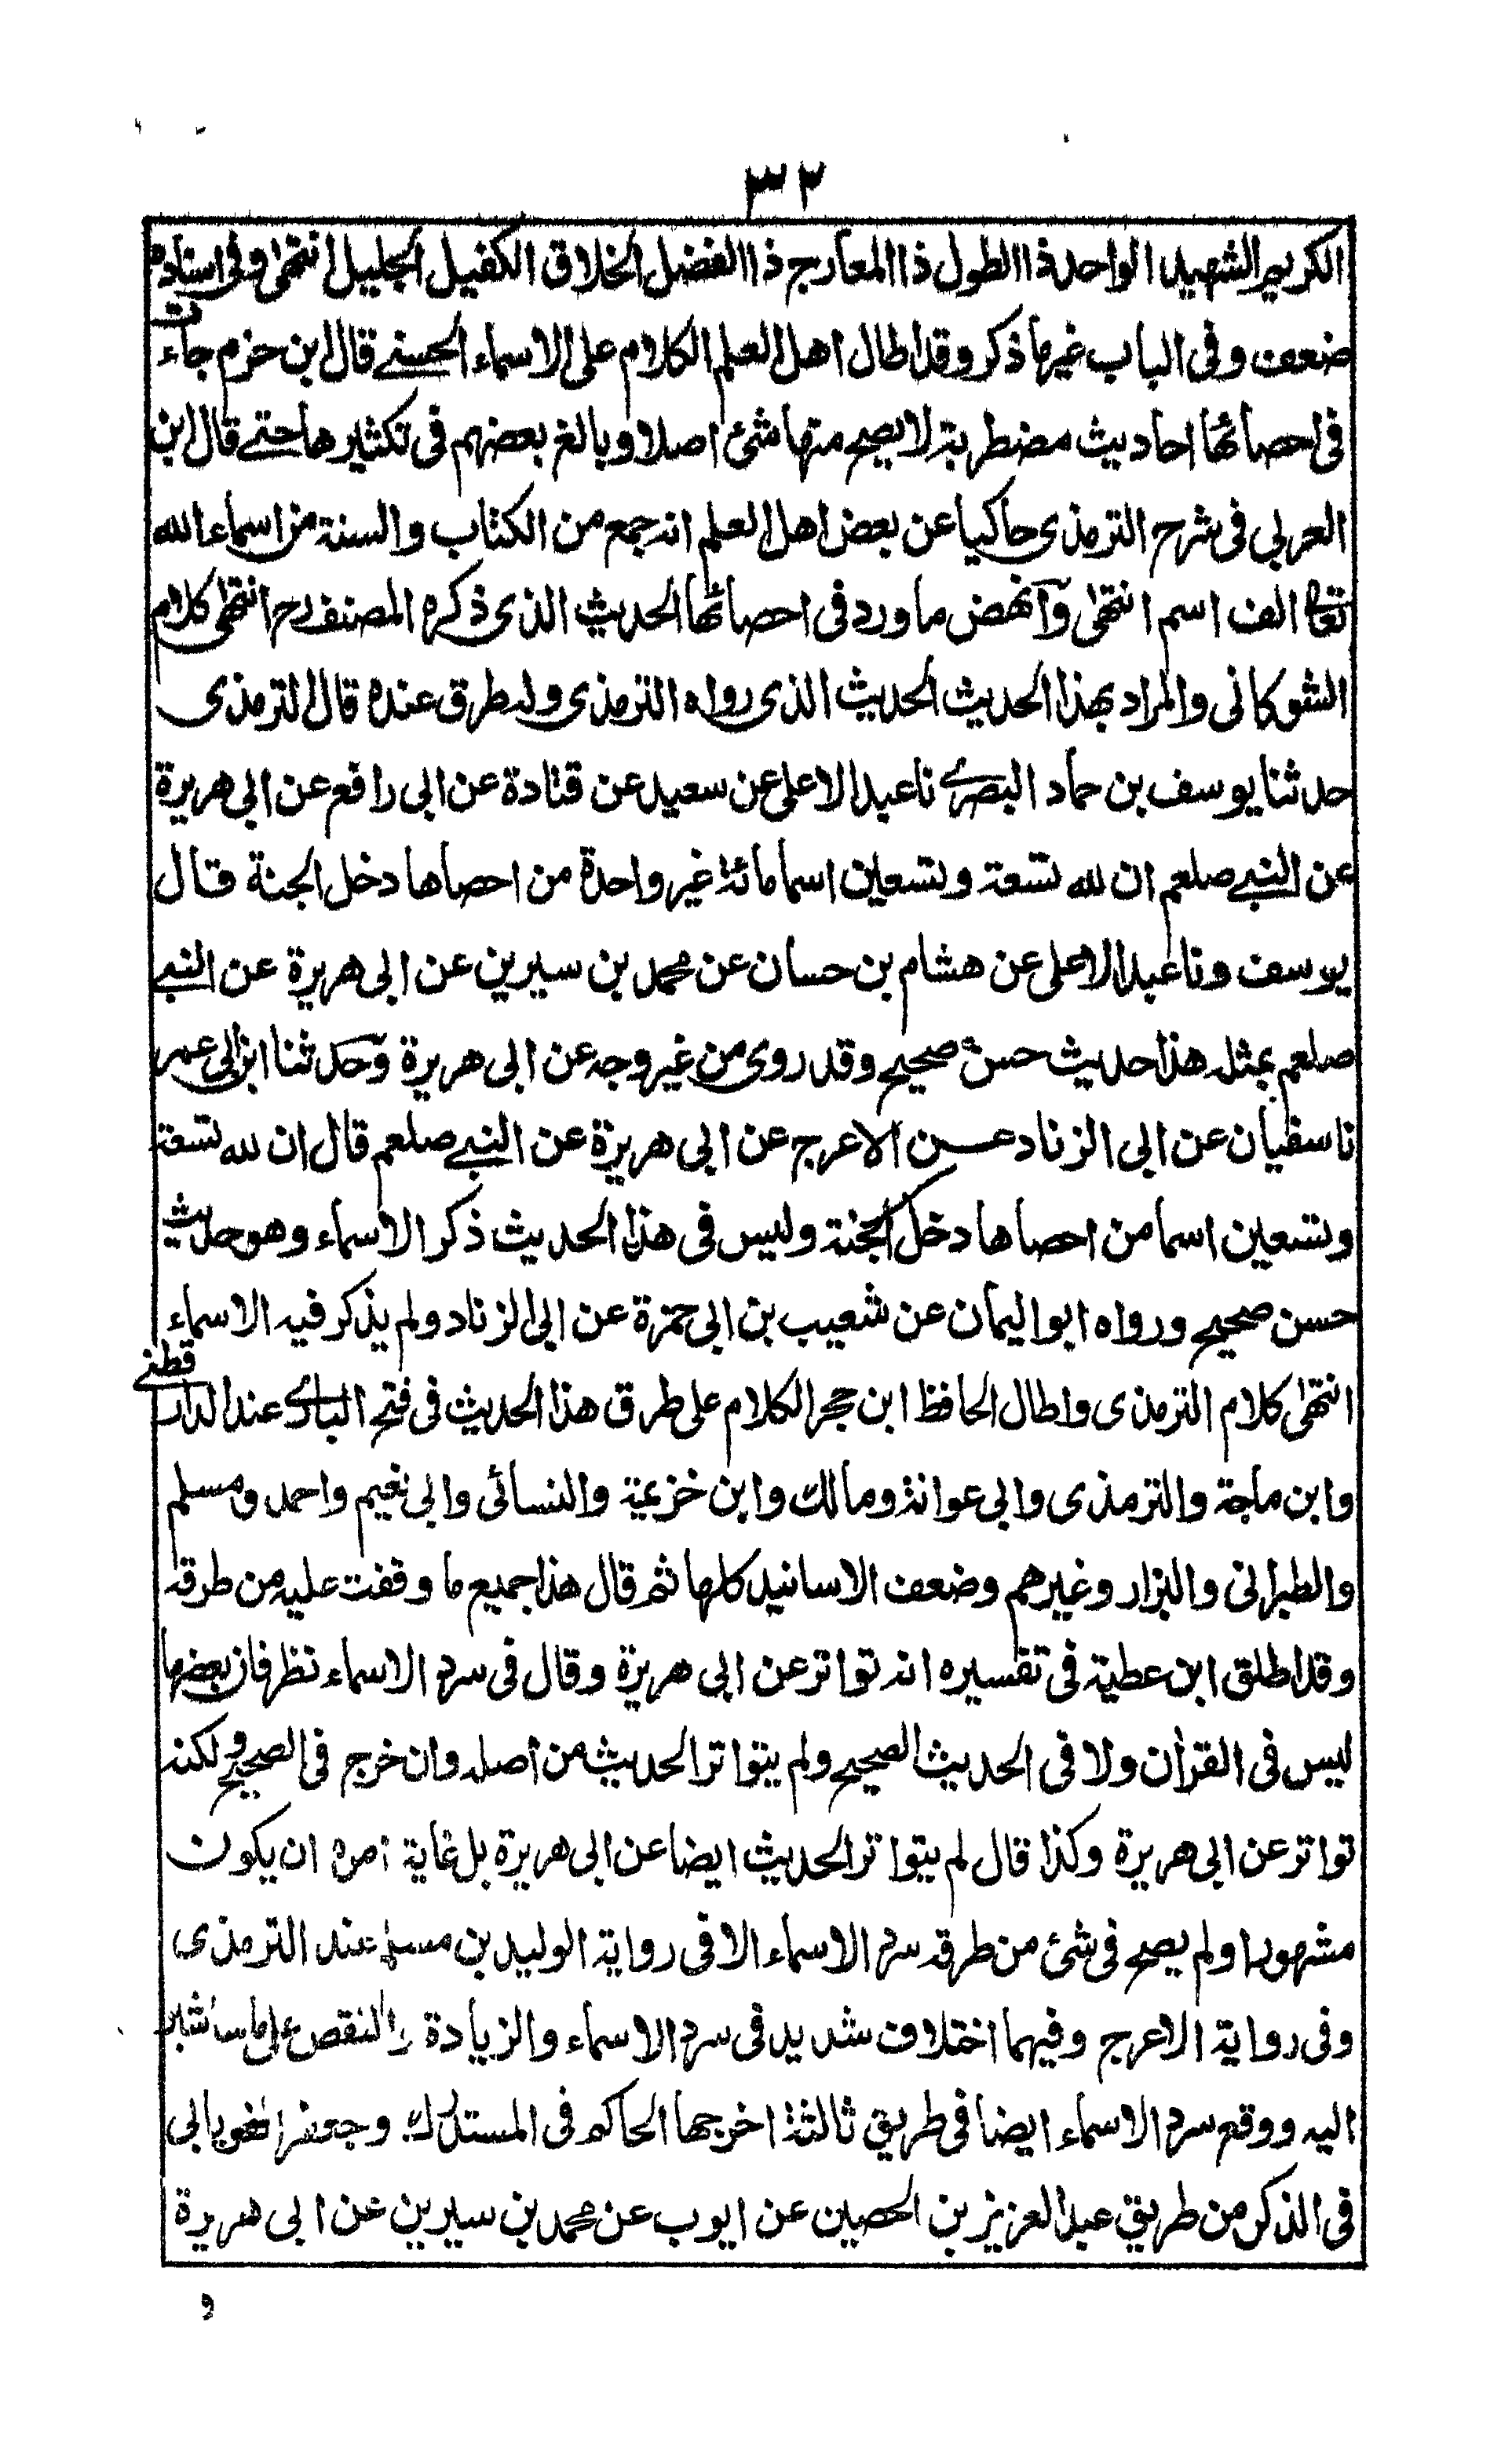 ٣٢
الكريم الشهيد الواحد ذا الطول ذا المعارج ذا الفضل الخلاق الكفيل الجليل انتهى وفى اسناده
ضعف وفى الباب غير ما ذكر وقد اطال اهل العلم الكلام على الاسماء الحسنى قال ابن حزم جاءت
فى احصائها احاديث مضطربة لا يصح منها شئ اصلا وبالغ بعضهم فى تكثيرها حتى قال ابن
العربي فى شرح الترمذى حاكيا عن بعض اهل العلم انه جمع من الكتاب والسنة من اسماء الله
تعالى الف اسم انتهى وآنهض ما ورد فى احصائها الحديث الذى ذكره المصنف رح انتهى كلام
الشوكانى والمراد بهذا الحديث الحديث الذى رواه الترمذى وله طرق عنده قال الترمذى
حدثنا يوسف بن حماد البصرى نا عبد الاعلى عن سعيد عن قتادة عن ابى رافع عن ابى هريرة
عن النبى صلعم ان لله تسعة وتسعين اسما مائة غير واحدة من احصاها دخل الجنة قال
يوسف ونا عبد الاعلى عن هشام بن حسان عن محمد بن سيرين عن ابى هريرة عن النبى
صلعم بمثله هذا حديث حسن صحيح وقد روى من غير وجه عن ابى هريرة وحدثنا ابن ابى عمر
نا سفيان عن ابى الزناد عن الاعرج عن ابى هريرة عن النبى صلعم قال ان لله تسعة
وتسعين اسما من احصاها دخل الجنة وليس فى هذا الحديث ذكر الاسماء وهو حديث
حسن صحيح ورواه ابو اليمان عن شعيب بن ابى حمزة عن ابى الزناد ولم يذكر فيه الاسماء
انتهى كلام الترمذى واطال الحافظ ابن حجر الكلام على طرق هذا الحديث فى فتح البارى عند الدارقطنى
وابن ماجة والترمذى وابى عوانة ومالك وابن خزيمة والنسائى وابى نعيم واحمد ومسلم
والطبرانى والبزار وغيرهم وضعف الاسانيد كلها ثم قال هذا جميع ما وقفت عليه من طرقه
وقد اطلق ابن عطية فى تفسيره انه تواتر عن ابى هريرة وقال فى سرد الاسماء نظر فان بعضها
ليس فى القرآن ولا فى الحديث الصحيح ولم يتواتر الحديث من اصله وان خرج فى الصحيح ولكنه
تواتر عن ابى هريرة وكذا قال لم يتواتر الحديث ايضا عن ابى هريرة بل غاية امره ان يكون
مشهورا ولم يصح فى شئ من طرقه سرد الاسماء الا فى رواية الوليد بن مسلم عند الترمذى
وفى رواية الاعرج وفيهما اختلاف شديد فى سرد الاسماء والزيادة والنقص على ما ساشير
اليه ووقع سرد الاسماء ايضا فى طريق ثالثة اخرجها الحاكم فى المستدرك وجعفر الفريابى
فى الذكر من طريق عبد العزيز بن الحصين عن ايوب عن محمد بن سيرين عن ابى هريرة
و